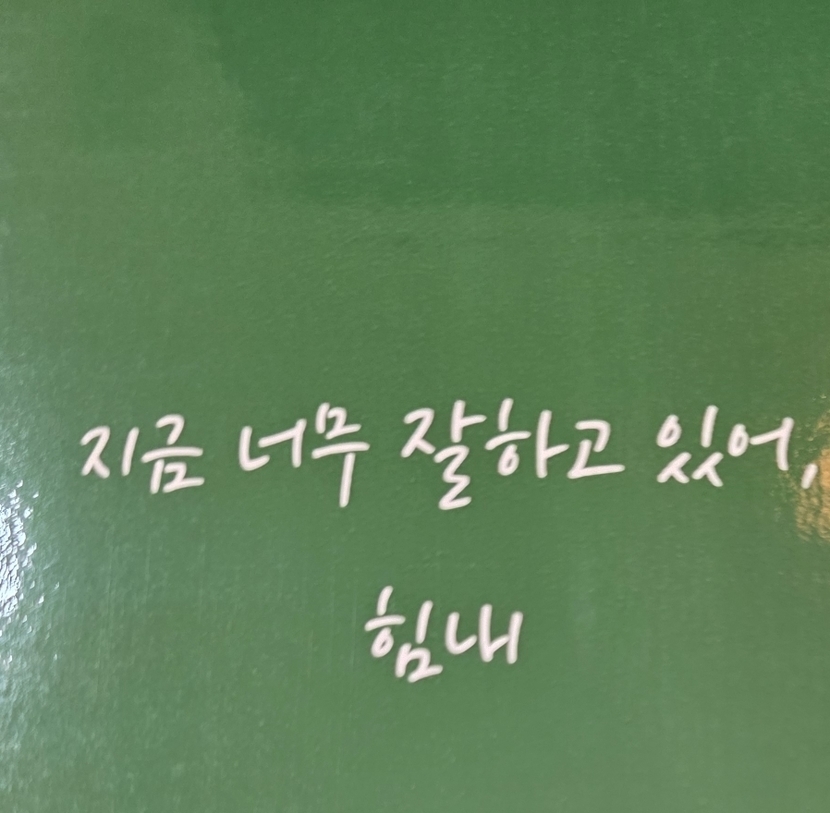 지금 너무 잘하고 있어,
힘내